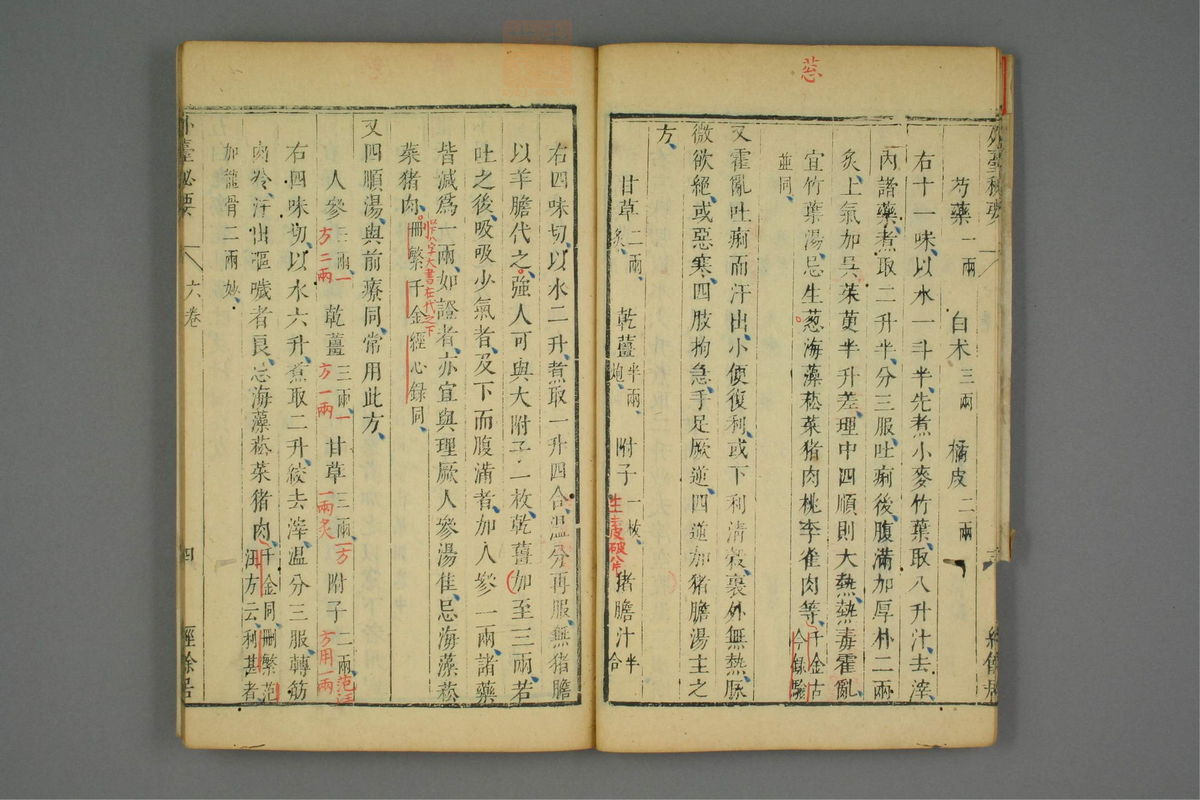 葱
芍藥一兩 白术三兩 橘皮二兩
右十一味以水一斗半先煮小麥竹葉取八升汁去滓
內諸藥煮取二升半分三服吐痢後腹滿加厚朴二兩
炙上氣加吳茱萸半升差理中四順則大熱熱毒霍亂
宜竹葉湯忌生葱海藻菘菜猪肉桃李雀肉等千金古今錄驗
並同
又霍亂吐痢而汗出小便復利或下利清穀裏外無熱脈
微欲絕或惡寒四肢拘急手足厥逆四逆加猪膽湯主之
方
甘草二兩炙 乾薑半兩炮 附子一枚 生去皮破 猪膽汁半合
右四味切以水二升煮取一升四合溫分再服無猪膽
以羊膽代之強人可與大附子一枚乾薑加至三兩若
吐之後吸吸少氣者及下而腹滿者加人參一兩諸藥
皆減爲一兩如證者亦宜與理厥人參湯佳忌海藻菘
菜猪肉刪繁千金經心錄同
字大書在代之下
又四順湯與前療同常用此方
人參三兩一方二兩 乾薑三兩一方一兩 甘草三兩一方一兩炙 附子二兩范汪方用一兩
右四味切以水六升煮取二升綾去滓溫分三服轉筋
肉冷汗出漚噦者良忌海藻菘菜猪肉千金同刪繁范汪方云利甚者
加龍骨二兩妙
外臺秘要
六卷
四
經餘居